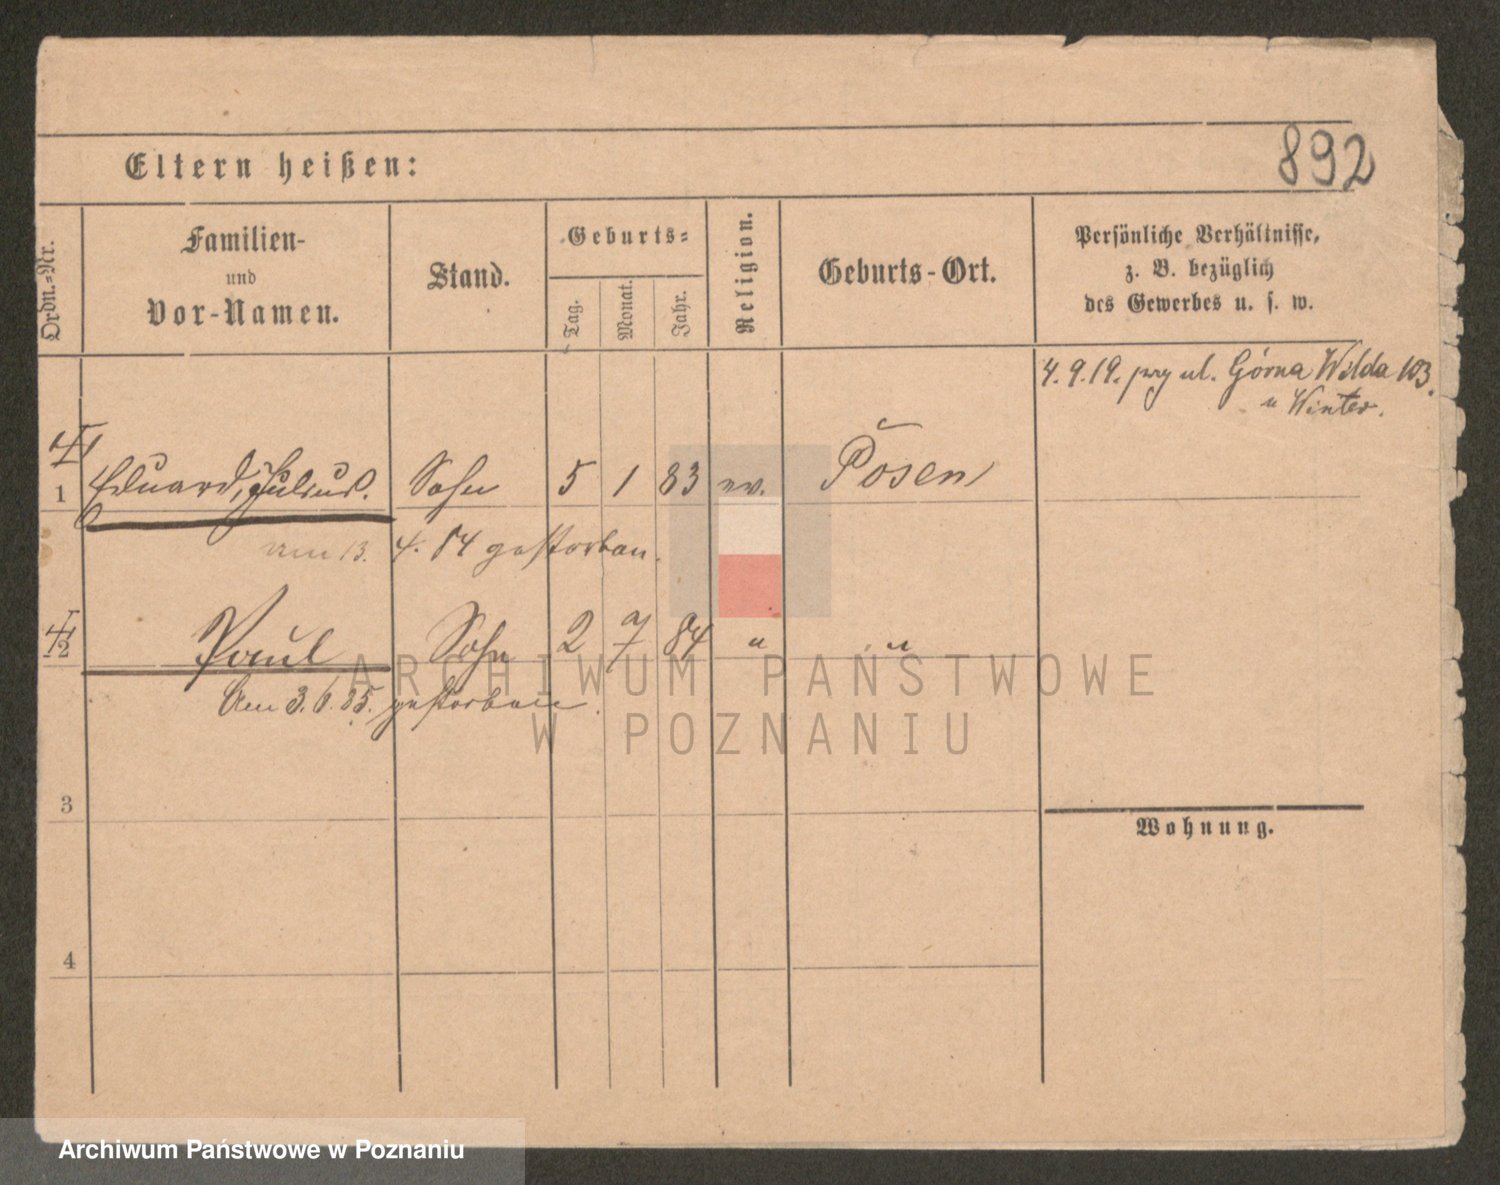 892
Eltern heißen:
Ordn.-Nr.
Familien-
und
Vor-Namen.
Stand.
Geburts-
Tag.
Monat.
Jahr.
Religion.
Geburts-Ort.
Persönliche Verhältnisse,
z. B. bezüglich
des Gewerbes u. s. w.
4.9.19. przy ul. Górna Wilda 103.
u Winter.
1 Eduard, Julius. Sohn 5 1 83 ev. Posen
am 13. 4. 84 gestorben.
2 Paul Sohn 2 7 84 " "
Am 3. 6. 85. gestorben.
3
Wohnung.
4
ARCHIWUM PAŃSTWOWE
W POZNANIU
Archiwum Państwowe w Poznaniu